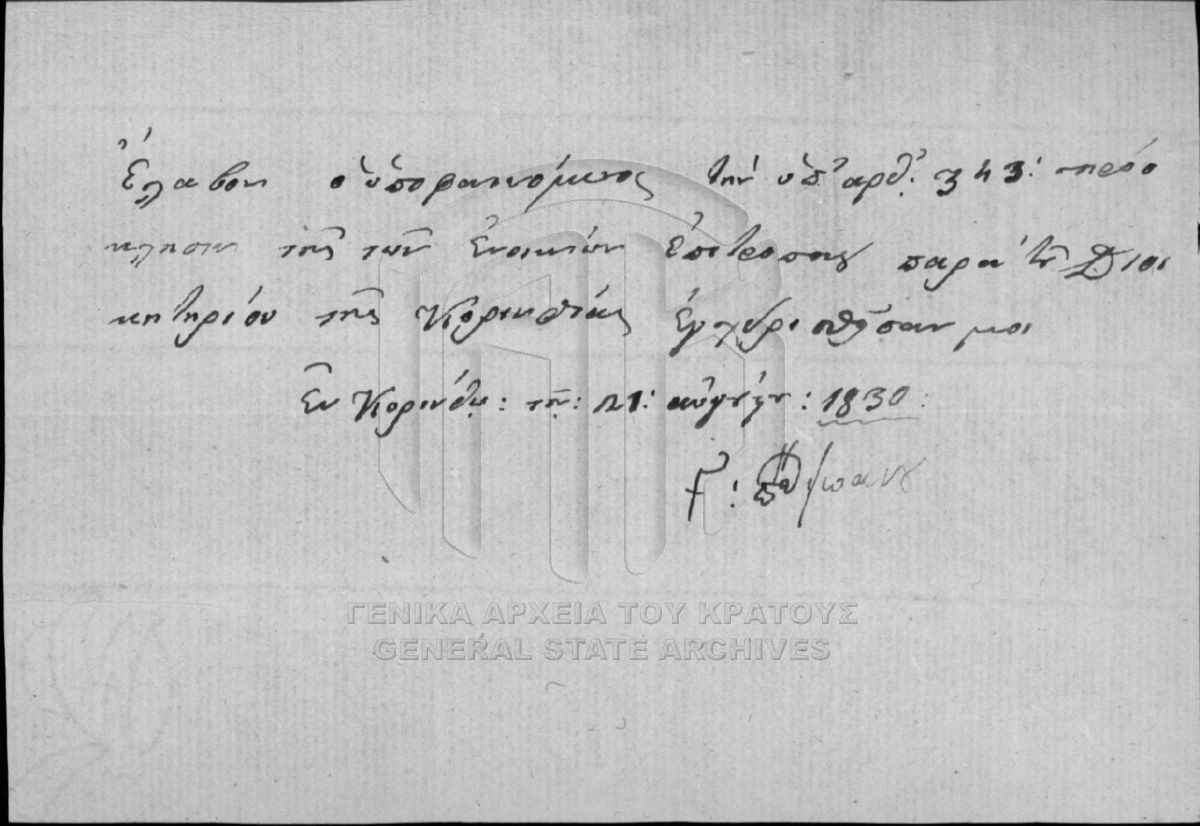 Ἔλαβον ὁ ὑποφαινόμενος τὴν ὑπ' ἀρθ: 343: πρόσ
κλησιν τῆς τῶν Ἐνοικίων Ἐπιτροπῆς παρὰ τοῦ Διοι
κητηρίου τῆς Κορινθίας ἐγχειρισθῆσαν μοι
Ἐν Κορίνθῳ: τῇ: 21: αὐγούστου: 1830:
Γ:
ΓΕΝΙΚΑ ΑΡΧΕΙΑ ΤΟΥ ΚΡΑΤΟΥΣ
GENERAL STATE ARCHIVES